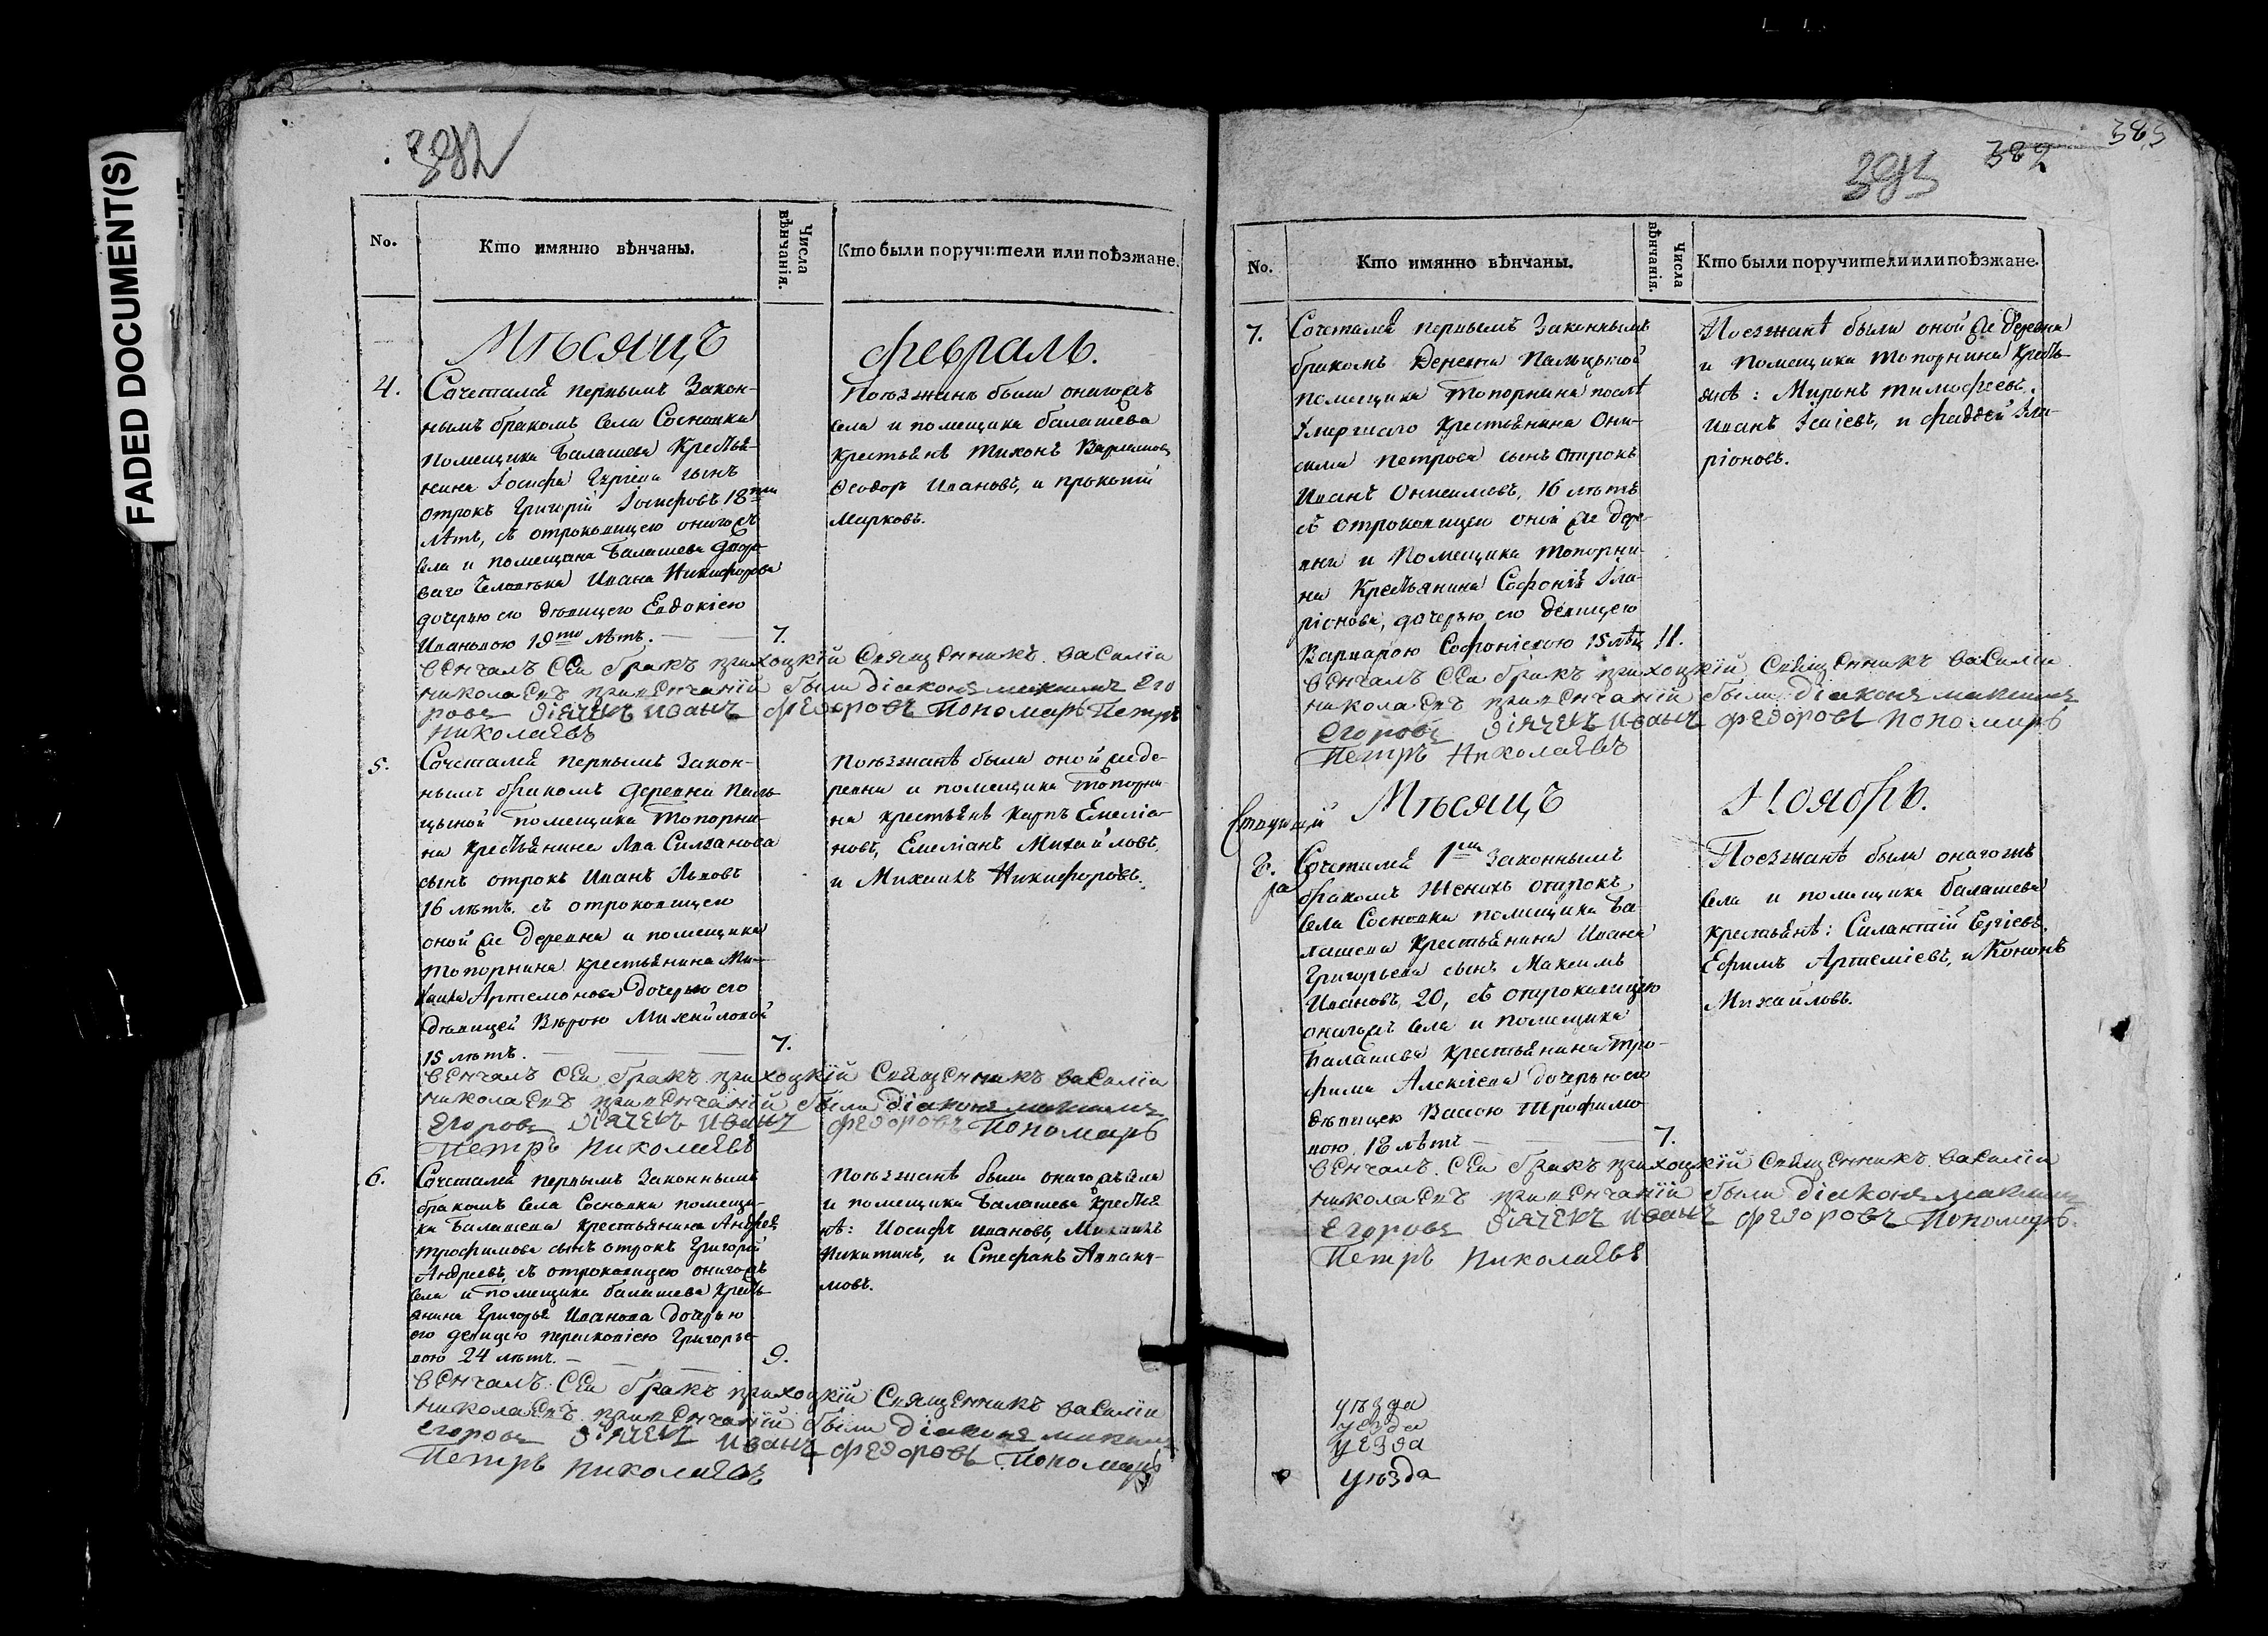 FADED DOCUMENT(S)
392
No.
Кто имянно вѣнчаны.
Числа вѣнчанія.
Кто были поручители или поѣзжане.
Мѣсяцъ Февраль.
4. Сочетался первымъ закон-
нымъ бракомъ села Сосновки
помещика Балашева кресть-
янина Іосифа сынъ
отрокъ Григорій Іосифовъ 18ти
лѣтъ, съ отроковицею онагожъ
села и помещика Балашева дворо-
ваго человѣка Ивана Никифорова
дочерью ею девицею Евдокіею
Ивановою 19ти лѣтъ. 7.
Поѣзжане были онагожъ
села и помещика балашева
крестьянѣ Тихонъ
Ѳеодоръ Ивановъ, и прокопій
Марковъ.
венчалъ сеи бракъ прихоцкїй священникъ василіи
николаевъ привенчанїй были діаконъ максимъ Его
ровъ дїячекъ иванъ федоровъ пономарь Петръ
николаевъ
5. Сочетался первымъ закон-
нымъ бракомъ деревни Паль-
цыной помещика Топорни-
на крестьянина Льва Силванова
сынъ отрокъ Иванъ Львовъ
16 лѣтъ. съ отроковицею
оной же деревни и помещика
топорнина крестьянина Ми-
хаила Артемонова дочерью его
дѣвицей Вѣрою Михайловой
15 лѣтъ. 7.
Поѣзжанѣ были оной же де-
ревни и помещика Топорни-
на крестьянѣ Карпъ Емеліа-
новъ, Емеліанъ Михайловъ,
и Михаилъ Никифоровъ.
венчалъ сеи бракъ прихоцкїй священникъ василіи
николаевъ привенчанїй были діаконъ максимъ
Егоровъ дїячекъ иванъ федоровъ Пономарь
Петръ николаевъ
6. Сочетался первымъ законнымъ
бракомъ села Сосновки помещи-
ка Балашева крестьянина Андрея
трофимова сынъ отрокъ Григорій
Андреевъ, съ отроковицею онагожъ
села и помещика балашева кресть-
янина Григорья Иванова дочерью
его девицею Григорье-
вою 24 лѣтъ. 9.
Поѣзжанѣ были онагожъ села
и помещика Балашева крестья
нѣ: Иосифъ ивановъ, Михаилъ
Никитинъ, и Стефанъ Авваку-
мовъ.
венчалъ сеи бракъ прихоцкїй священникъ василіи
николаевъ привенчанїй были діаконъ максимъ
егоровъ дїячекъ иванъ федоровъ Пономарь
Петръ николаевъ
393 382 383
No.
Кто имянно вѣнчаны.
Числа вѣнчанія.
Кто были поручители или поѣзжане.
7. Сочетался первымъ законнымъ
бракомъ деревни Пальцыной
помещика Топорнина послѣ
умершаго крестьянина Они-
сима петрова сынъ отрокъ
Иванъ Онисимовъ, 16 лѣтъ
съ отроковицею оной же дере-
вни и помещика топорни-
на крестьянина Софонія Ила-
ріонова, дочерью ею девицею
Варварою Софоніевою 15 лѣтъ 11.
Поезжанѣ были оной же деревни
и помещика топорнина кресть-
янѣ: Миронъ тимофеевъ,
Иванъ Ісаіевъ, и фаддей Ила-
ріоновъ.
венчалъ сеи бракъ прихоцкїй священникъ василіи
николаевъ привенчанїй были діаконъ максимъ
егоровъ дїячекъ иванъ федоровъ пономарь
Петръ николаевъ
Мѣсяцъ Ноябрь.
8. Сочетался 1мъ законнымъ
бракомъ женихъ отрокъ
села Сосновки помещика Ба-
лашева крестьянина Ивана
Григорьева сынъ Максимъ
Ивановъ, 20, съ отроковицею
онагожъ села и помещика
Балашева крестьянина тро-
фима Алексіева дочерью ею
девицею Вассою Трофимо-
вою, 18 лѣтъ 7.
Поезжанѣ были онагожъ
села и помещика балашева
крестьянѣ: Силантій Сергіевъ,
Ефимъ Артеміевъ, и Кононъ
Михайловъ.
венчалъ сеи бракъ прихоцкїй священникъ василіи
николаевъ привенчанїй были діаконъ максимъ
Егоровъ дїячекъ иванъ федоровъ Пономарь
Петръ николаевъ
уѣзда
уезда
уезда
уѣзда